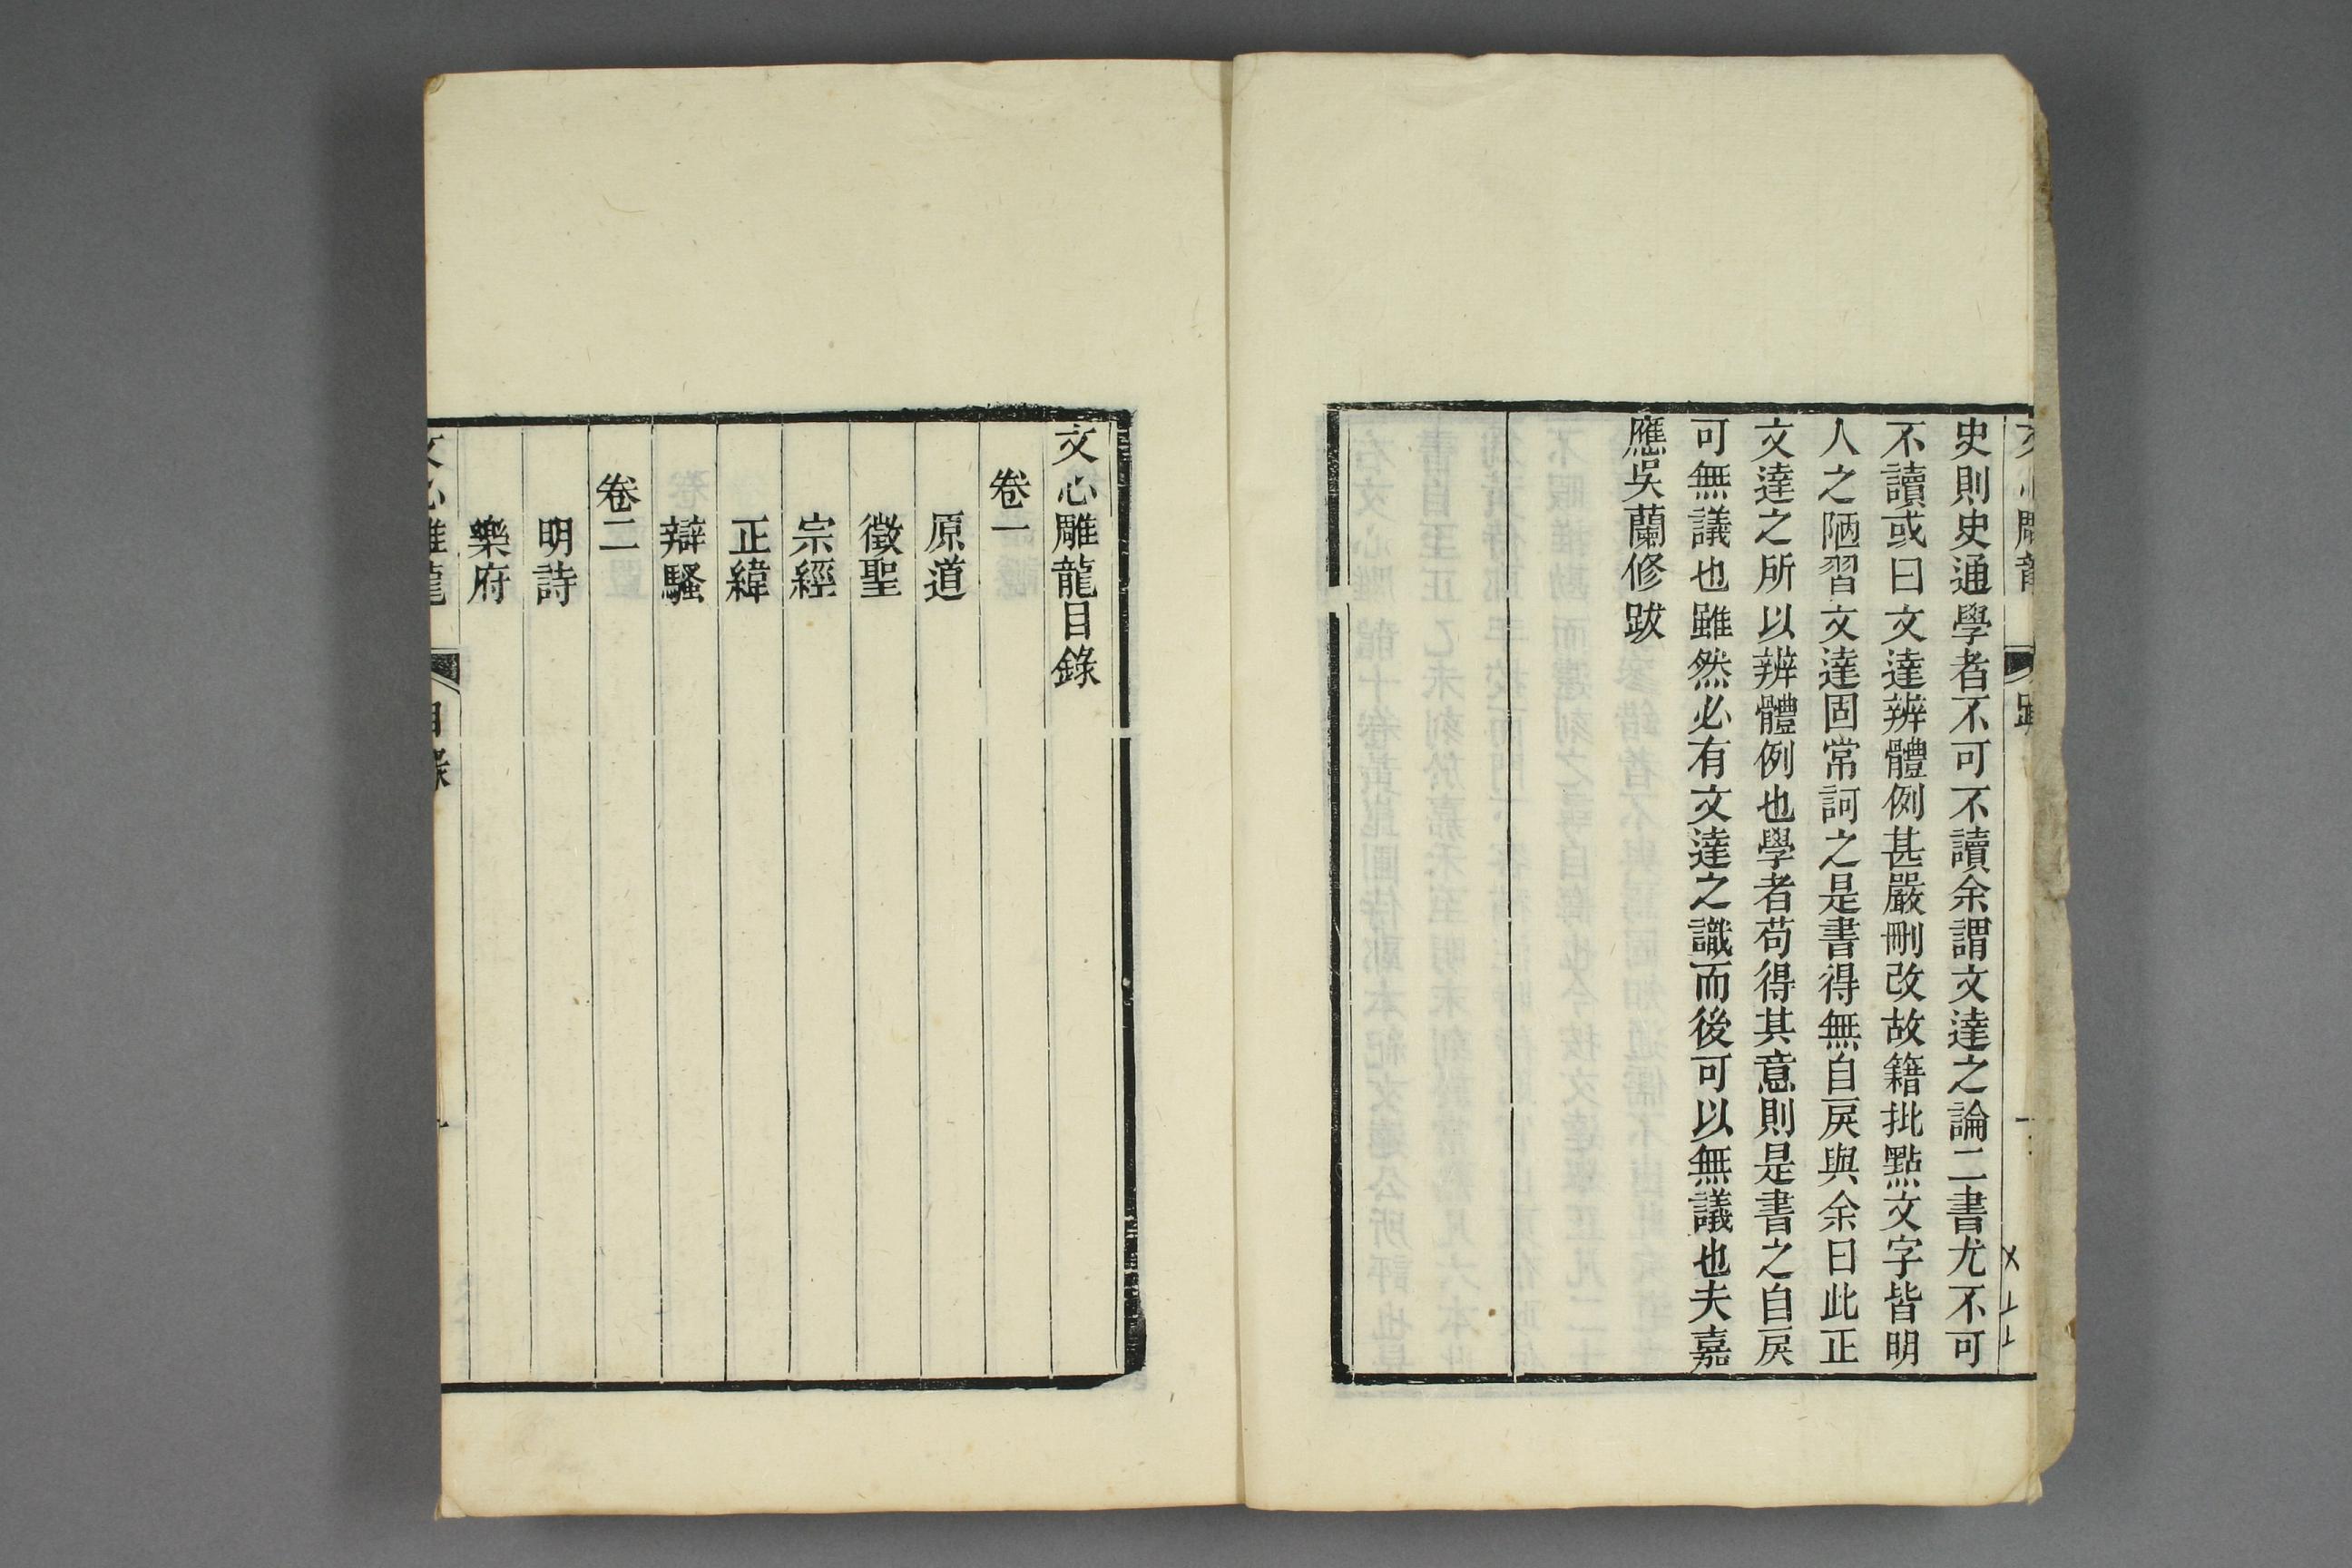 史則史通學者不可不讀余謂文達之論二書尤不可
不讀或曰文達辨體例甚嚴刪改故籍批點文字皆明
人之陋習文達固常訶之是書得無自戾與余曰此正
文達之所以辨體例也學者苟得其意則是書之自戾
可無議也雖然必有文達之識而後可以無議也夫嘉
應吳蘭修跋
文心雕龍目錄
卷一
原道
徵聖
宗經
正緯
辯騷
卷二
明詩
樂府
文心雕龍
目錄